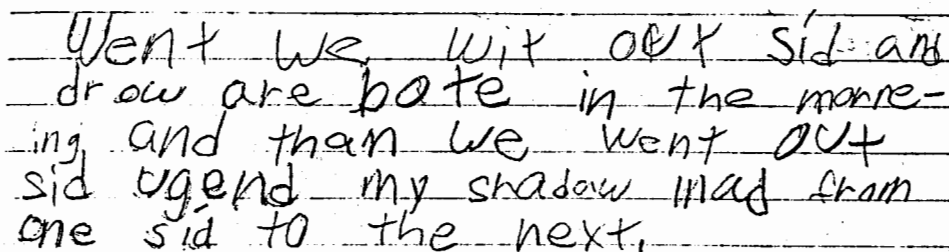 Went we wit out sid and
drow are bote in the morne-
ing and than we went out
sid ugend my shadow mad from
one sid to the next.